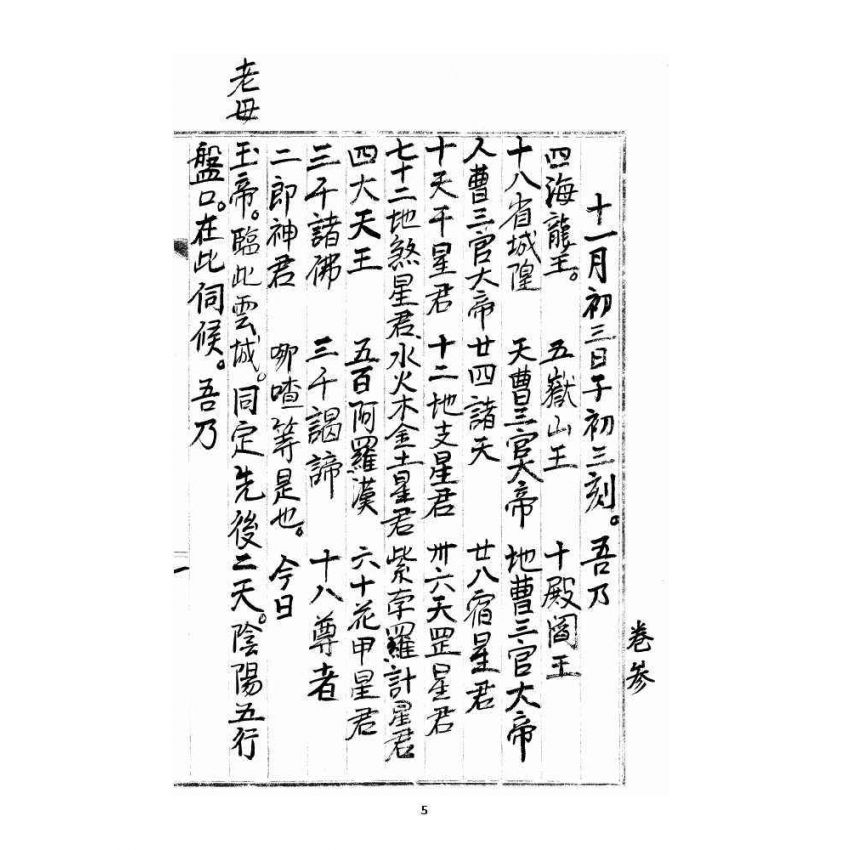 卷參
十一月初三日子初三刻。吾乃
四海龍王。 五嶽山王 十殿閻王
十八省城隍 天曹三官大帝 地曹三官大帝
人曹三官大帝 廿四諸天 廿八宿星君
十天干星君 十二地支星君 卅六天罡星君
七十二地煞星君、水火木金土星君 紫孛羅計星君
四大天王 五百阿羅漢 六十花甲星君
三千諸佛 三千謁諦 十八尊者
二郎神君 哪喳等是也。 今日
老母
玉帝。臨此雲城。同定先後二天。陰陽五行
盤口。在此伺候。吾乃
一
5